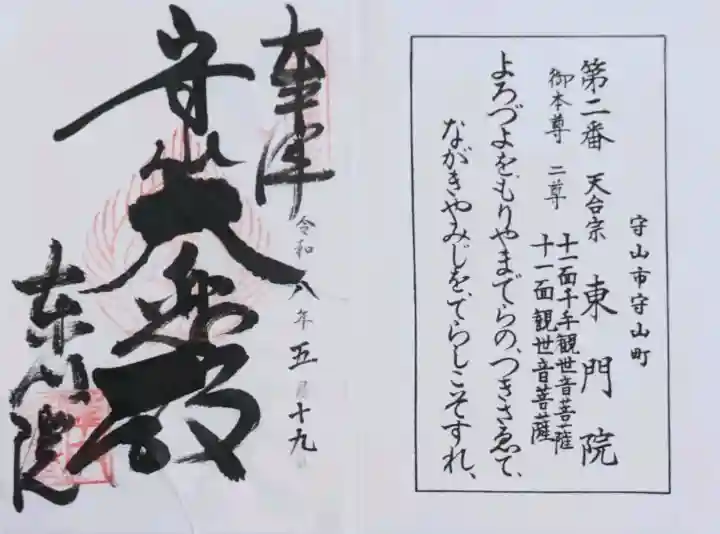 守山市守山町
第二番 天台宗 東門院
御本尊 二尊 十一面千手観世音菩薩
十一面観世音菩薩
よろづよをもりやまでらの、つきさゑて、
ながきやみじをてらしこそすれ、
奉拝
令和八年五月十九日
守山大悲殿
東門院